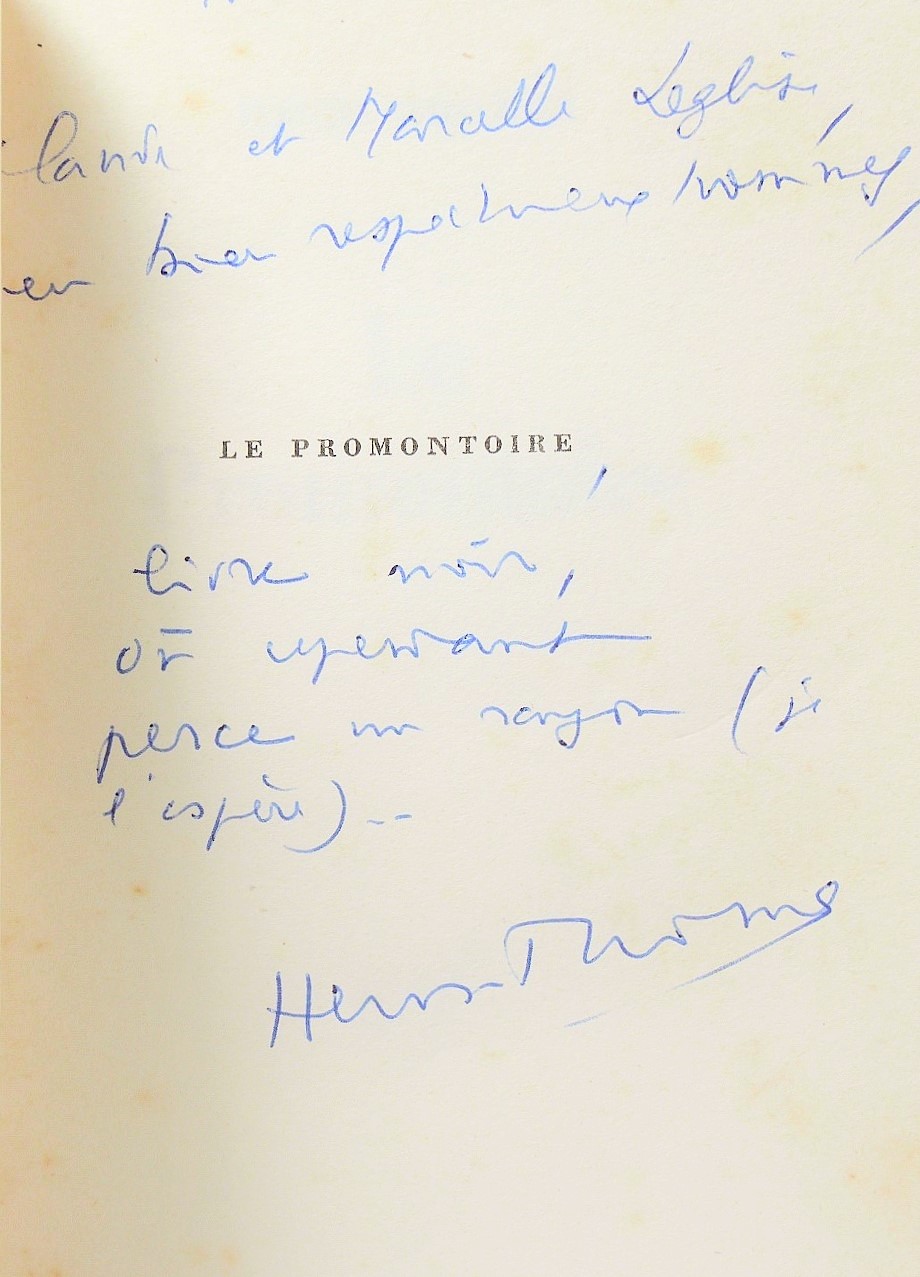 et Marcelle Leglise,
en bien respectueux hommages,
LE PROMONTOIRE
livre noir,
où cependant
perce un rayon (je
l'espère)--
Henri Thomas